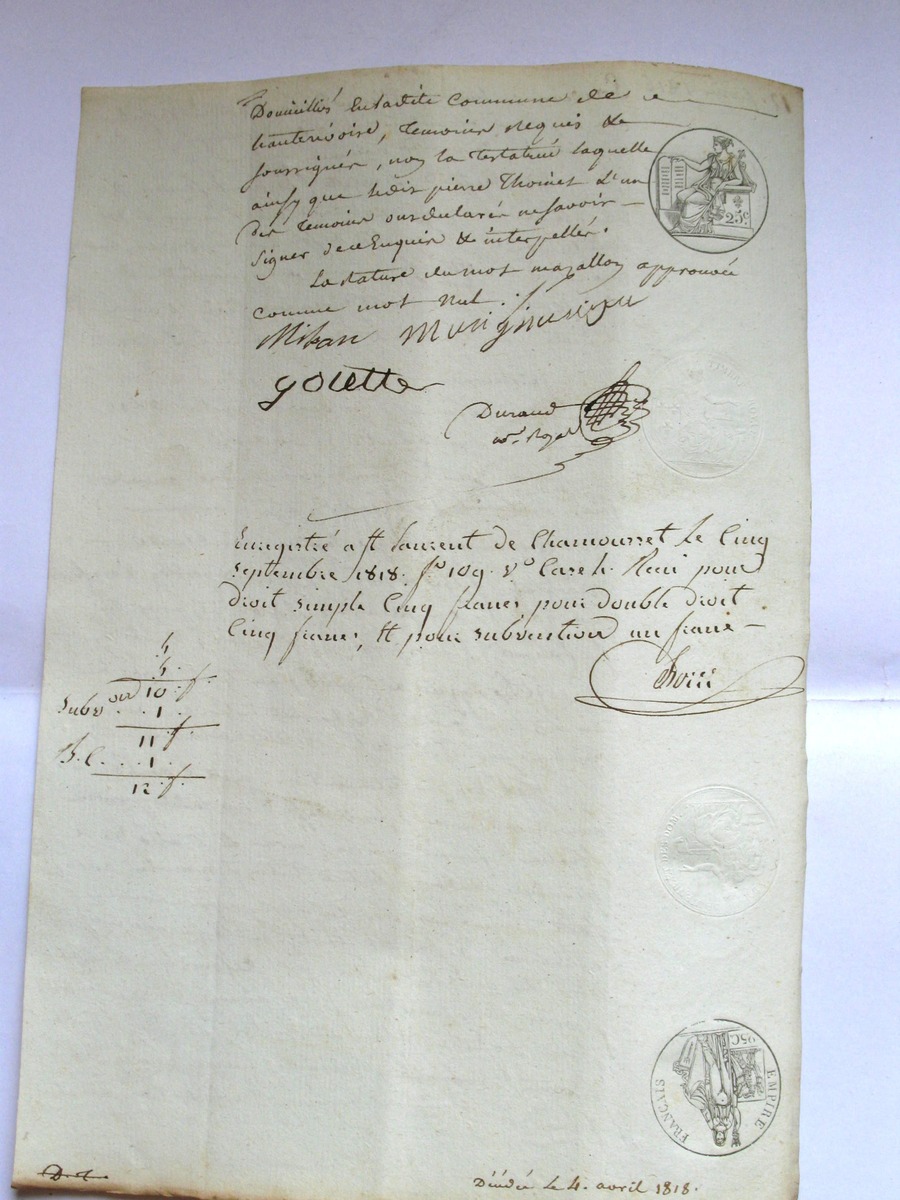 Domicilliés En ladite Commune de
hauterivoire, Temoins Requis &
soussignés, non la Testatrice laquelle
ainsy que ledit pierre Thoinet L'un
des Temoins ont declaré ne savoir
signer de ce Enquis & interpellés.
La rature du mot mazallon approuvée
comme mot Nul.
goutte
25c
Durand
no.re Royal
Enregistré a St Laurent de Chamousset Le Cinq
Septembre 1818. fo 109. Vo Case 4. Reçu pour
droit simple Cinq francs pour double droit
Cinq francs, & pour subvention un franc
5
5.
10 f.
Subvon . . 1.
11 f.
. . . 1.
12 f.
25C
EMPIRE
FRANÇAIS
Décédée le 4. avril 1818.